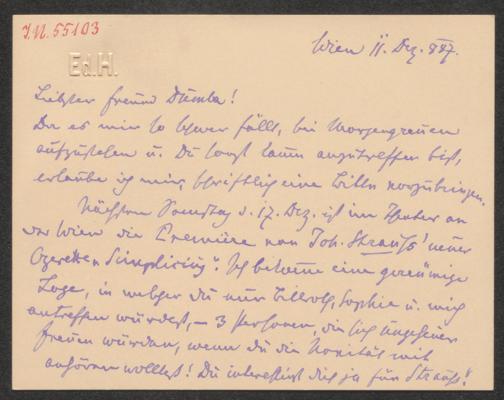 I.N. 55103
Ed.H.
Wien 11. Dez. 887.
Liebster Freund Dumba!
Da es mir so schwer fällt, bei Morgengrauen
aufzustehen u. Du sonst kaum anzutreffen bist,
erlaube ich mir, schriftlich eine Bitte vorzubringen.
Nächsten Samstag d. 17. Dez. ist im Theater an
der Wien die Première von Joh. Strauss' neuer
Operette „Simplicius“. Ich bekomme eine geräumige
Loge, in welcher du nur Billroth, Sophie u. mich
antreffen würdest, – 3 Personen, die sich ungeheuer
freuen würden, wenn du die Novität mit
anhören wolltest! Du interessirst dich ja für Strauss.